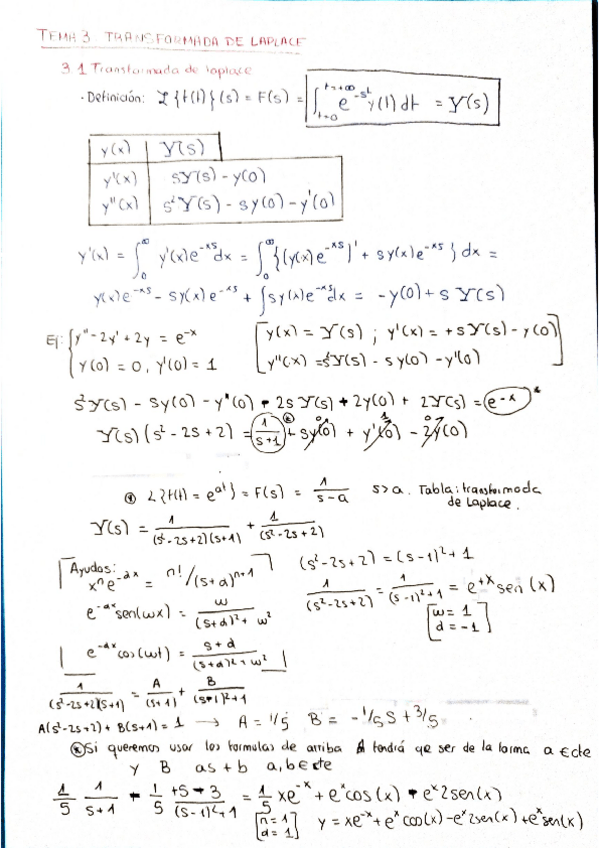 TEMA 3 TRANSFORMADA DE LAPLACE
3.1 Transformada de laplace
· Definición: L{f(t)}(s) = F(s) = ∫_{t=0}^{t=+∞} e^{-st} y(t) dt = Y(s)
y(x) | Y(s)
y'(x) | sY(s) - y(0)
y''(x) | s²Y(s) - sy(0) - y'(0)
y'(x) = ∫_0^∞ y'(x)e^{-xs}dx = ∫_0^∞ {(y(x)e^{-xs})' + sy(x)e^{-xs}} dx =
y(x)e^{-xs} - sy(x)e^{-xs} + ∫sy(x)e^{-xs}dx = -y(0) + s Y(s)
Ej: {y'' - 2y' + 2y = e^{-x} [y(x) = Y(s) ; y'(x) = +sY(s) - y(0)
y(0) = 0, y'(0) = 1 y''(x) = s²Y(s) - sy(0) - y'(0)]
s²Y(s) - sy(0) - y'(0) - 2sY(s) + 2y(0) + 2Y(s) = e^{-x} *
Y(s)(s² - 2s + 2) = 1/(s+1) + sy(0) + y'(0) - 2y(0)
⊛ L{f(t) = e^{at}} = F(s) = 1/(s-a) s>a. Tabla: transformada
de Laplace.
Y(s) = 1/((s²-2s+2)(s+1)) + 1/(s²-2s+2)
Ayudas:
x^n e^{-ax} = n!/(s+a)^{n+1} (s²-2s+2) = (s-1)²+1
e^{-ax}sen(wx) = w/((s+a)²+w²) 1/(s²-2s+2) = 1/((s-1)²+1) = e^{+x} sen(x)
[w=1
d=-1]
e^{-ax}cos(wt) = (s+d)/((s+a)²+w²)
1/((s²-2s+2)(s+1)) = A/(s+1) + B/((s-1)²+1)
A(s²-2s+2) + B(s+1) = 1 → A = 1/5 B = -1/5 s + 3/5
⊛ Si queremos usar las formulas de arriba A tendrá que ser de la forma a ∈ cte
y B as+b a,b∈cte
1/5 1/(s+1) - 1/5 (+s-3)/((s-1)²+1) = 1/5 xe^{-x} + e^x cos(x) - e^x 2sen(x)
[n=1
d=1] y = xe^{-x} + e^x cos(x) - e^x 2sen(x) + e^x sen(x)